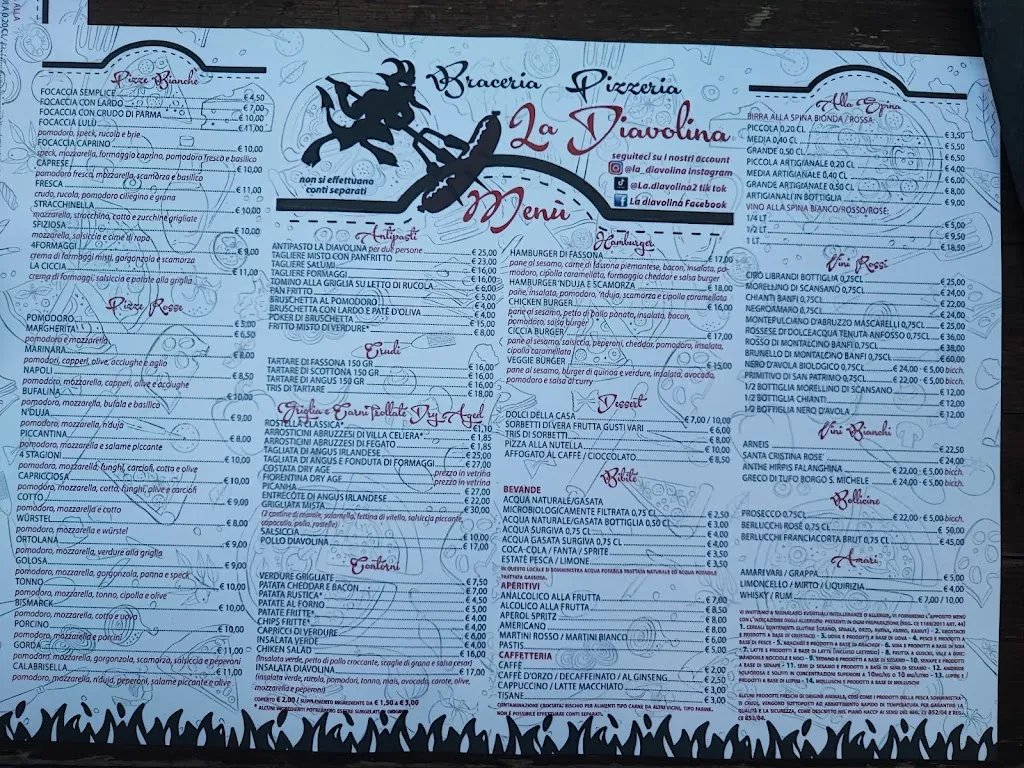 Pizze Bianche
FOCACCIA SEMPLICE € 4,50
FOCACCIA CON LARDO € 7,00
FOCACCIA CON CRUDO DI PARMA € 10,00
FOCACCIA LULÙ € 11,00
pomodoro, speck, rucola e brie
FOCACCIA CAPRINO € 10,00
speck, mozzarella, formaggio caprino, pomodoro fresco e basilico
CAPRESE € 10,00
pomodoro fresco, mozzarella, scamorza e basilico
FRESCA € 11,00
crudo, rucola, pomodoro ciliegino e grana
STRACCHINELLA € 10,00
mozzarella, stracchino, cotto e zucchine grigliate
SFIZIOSA € 10,00
mozzarella, salsiccia e cime di rapa
4FORMAGGI € 9,00
crema di formaggi misti, gorgonzola e scamorza
LA CICCIA € 11,00
crema di formaggi, salsiccia e patate alla griglia
Pizze Rosse
POMODORO € 5,00
MARGHERITA € 6,50
pomodoro e mozzarella
MARINARA € 8,00
pomodori, capperi, olive, acciughe e aglio
NAPOLI € 8,50
pomodoro, mozzarella, capperi, olive e acciughe
BUFALINA € 10,00
pomodoro, mozzarella, bufala e basilico
N'DUJA € 9,00
pomodoro, mozzarella, n'duja
PICCANTINA € 8,00
pomodoro, mozzarella e salame piccante
4 STAGIONI € 10,00
pomodoro, mozzarella, funghi, carciofi, cotto e olive
CAPRICCIOSA € 10,00
pomodoro, mozzarella, cotto, funghi, olive e carciofi
COTTO € 9,00
pomodoro, mozzarella e cotto
WÜRSTEL € 8,00
pomodoro, mozzarella e würstel
ORTOLANA € 9,00
pomodoro, mozzarella, verdure alla griglia
GOLOSA € 9,00
pomodoro, mozzarella, gorgonzola, panna e speck
TONNO € 10,00
pomodoro, mozzarella, tonno, cipolla e olive
BISMARCK € 10,00
pomodoro, mozzarella, cotto e uova
PORCINO € 10,00
pomodoro, mozzarella e porcini
GORDA € 11,00
pomodoro, mozzarella, gorgonzola, scamorza, salsiccia e peperoni
CALABRISELLA € 11,00
pomodoro, mozzarella, n'duja, peperoni, salame piccante e olive
Braceria Pizzeria
La Diavolina
seguiteci su i nostri account
@la_diavolina instagram
@La.diavolina2 tik tok
La diavolina Facebook
non si effettuano
conti separati
Menù
Antipasti
ANTIPASTO LA DIAVOLINA per due persone € 25,00
TAGLIERE MISTO CON PANFRITTO € 23,00
TAGLIERE SALUMI € 16,00
TAGLIERE FORMAGGI € 16,00
TOMINO ALLA GRIGLIA SU LETTO DI RUCOLA € 6,00
PAN FRITTO € 5,00
BRUSCHETTA AL POMODORO € 4,00
BRUSCHETTA CON LARDO E PATÈ D'OLIVA € 4,00
POKER DI BRUSCHETTA € 15,00
FRITTO MISTO DI VERDURE* € 8,00
Crudi
TARTARE DI FASSONA 150 GR € 16,00
TARTARE DI SCOTTONA 150 GR € 16,00
TARTARE DI ANGUS 150 GR € 16,00
TRIS DI TARTARE € 18,00
Griglia e Carni frollate Dry Aged
ROSTELLA CLASSICA* € 1,10
ARROSTICINI ABRUZZESI DI VILLA CELIERA* € 1,85
ARROSTICINI ABRUZZESI DI FEGATO € 1,85
TAGLIATA DI ANGUS IRLANDESE € 25,00
TAGLIATA DI ANGUS E FONDUTA DI FORMAGGI € 27,00
COSTATA DRY AGE prezzo in vetrina
FIORENTINA DRY AGE prezzo in vetrina
PICANHA € 27,00
ENTRECÔTE DI ANGUS IRLANDESE € 22,00
GRIGLIATA MISTA € 30,00
(2 costine di maiale, salamella, fettina di vitello, salsiccia piccante,
capocollo, pollo, rostelle)
SALSICCIA € 10,00
POLLO DIAVOLINA € 17,00
Contorni
VERDURE GRIGLIATE € 7,50
PATATA CHEDDAR E BACON € 7,00
PATATA RUSTICA* € 4,50
PATATE AL FORNO € 5,00
PATATE FRITTE* € 4,00
CHIPS FRITTE* € 4,00
CAPRICCI DI VERDURE € 6,00
INSALATA VERDE € 4,00
CHIKEN SALAD € 16,00
(insalata verde, petto di pollo croccante, scaglie di grana e salsa cesar)
INSALATA DIAVOLINA € 17,00
(insalata verde, rucola, pomodori, tonno, mais, avocado, carote, olive,
mozzarella e peperoni)
COPERTO € 2,00 / SUPPLEMENTO INGREDIENTE DA € 1,50 A € 3,00
* ALCUNI INGREDIENTI POTREBBERO ESSERE SURGELATI ALL'ORIGINE
Hamburger
HAMBURGER DI FASSONA € 17,00
pane al sesamo, carne di fassona piemontese, bacon, insalata, po-
modoro, cipolla caramellata, formaggio cheddar e salsa burger
HAMBURGER 'NDUJA E SCAMORZA € 18,00
pane, insalata, pomodoro, 'nduja, scamorza e cipolla caramellata
CHICKEN BURGER € 16,00
pane al sesamo, petto di pollo panato, insalata, bacon,
pomodoro, salsa burger
CICCIA BURGER € 17,00
pane al sesamo, salsiccia, peperoni, cheddar, pomodoro, insalata,
cipolla caramellata
VEGGIE BURGER € 15,00
pane al sesamo, burger di quinoa e verdure, insalata, avocado,
pomodoro e salsa al curry
Dessert
DOLCI DELLA CASA € 7,00 / 10,00
SORBETTI DI VERA FRUTTA GUSTI VARI € 6,00
TRIS DI SORBETTI € 8,00
PIZZA ALLA NUTELLA € 10,00
AFFOGATO AL CAFFÈ / CIOCCOLATO € 8,50
Bibite
BEVANDE
ACQUA NATURALE/GASATA
MICROBIOLOGICAMENTE FILTRATA 0,75 CL € 2,50
ACQUA NATURALE/GASATA BOTTIGLIA 0,50 CL € 3,00
ACQUA SURGIVA 0,75 CL € 4,00
ACQUA GASATA SURGIVA 0,75 CL € 4,00
COCA-COLA / FANTA / SPRITE € 3,50
ESTATÈ PESCA / LIMONE € 3,50
IN QUESTO LOCALE SI SOMMINISTRA ACQUA POTABILE TRATTATA NATURALE ED ACQUA POTABILE
TRATTATA GASSOSA.
APERITIVI
ANALCOLICO ALLA FRUTTA € 7,00
ALCOLICO ALLA FRUTTA € 8,50
APEROL SPRITZ € 8,00
AMERICANO € 8,00
MARTINI ROSSO / MARTINI BIANCO € 6,00
PASTIS € 5,00
CAFFETTERIA
CAFFÈ € 2,00
CAFFÈ D'ORZO / DECAFFEINATO / AL GINSENG € 2,50
CAPPUCCINO / LATTE MACCHIATO € 3,00
TISANE € 3,00
CONTAMINAZIONE CROCIATA: RISCHIO PER ALIMENTI TIPO CARNE DA ALTRI VICINI, TIPO FARINE.
NON È POSSIBILE EFFETTUARE CONTI SEPARATI.
Alla Spina
BIRRA ALLA SPINA BIONDA / ROSSA
PICCOLA 0,20 CL € 3,50
MEDIA 0,40 CL € 5,50
GRANDE 0,50 CL € 6,50
PICCOLA ARTIGIANALE 0.20 CL € 4,00
MEDIA ARTIGIANALE 0,40 CL € 6,00
GRANDE ARTIGIANALE 0,50 CL € 8,00
ARTIGIANALI IN BOTTIGLIA € 9,00
VINO ALLA SPINA BIANCO/ROSSO/ROSE:
1/4 LT € 5,00
1/2 LT € 9,50
1 LT € 18,50
Vini Rossi
CIRÒ LIBRANDI BOTTIGLIA 0,75CL € 25,00
MORELLINO DI SCANSANO 0,75CL € 24,00
CHIANTI BANFI 0,75CL € 22,00
NEGROAMARO 0,75CL € 24,00
MONTEPULCIANO D'ABRUZZO MASCARELLI 0,75CL € 25,00
ROSSESE DI DOLCEACQUA TENUTA ANFOSSO 0,75CL € 36,00
ROSSO DI MONTALCINO BANFI 0,75CL € 38,00
BRUNELLO DI MONTALCINO BANFI 0,75CL € 60,00
NERO D'AVOLA BIOLOGICO 0,75CL € 24,00 - € 5,00 bicch.
PRIMITIVO DI SAN PATRIMO 0,75CL € 22,00 - € 5,00 bicch.
1/2 BOTTIGLIA MORELLINO DI SCANSANO € 12,00
1/2 BOTTIGLIA CHIANTI € 12,00
1/2 BOTTIGLIA NERO D'AVOLA € 12,00
Vini Bianchi
ARNEIS € 22,50
SANTA CRISTINA ROSE' € 24,00
ANTHE HIRPIS FALANGHINA € 22,00 - € 5,00 bicch.
GRECO DI TUFO BORGO S. MICHELE € 24,00
Bollicine
PROSECCO 0,75CL € 22,00 - € 5,00 bicch.
BERLUCCHI ROSÈ 0,75 CL € 50,00
BERLUCCHI FRANCIACORTA BRUT 0,75 CL € 45,00
Amari
AMARI VARI / GRAPPA € 5,00
LIMONCELLO / MIRTO / LIQUIRIZIA € 4,00
WHISKY / RUM € 7,00 / 10,00